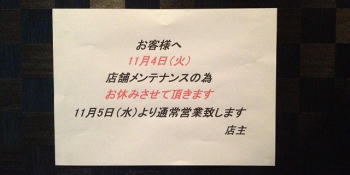 お客様へ
11月4日（火）
店舗メンテナンスの為
お休みさせて頂きます
11月5日（水）より通常営業致します
店主